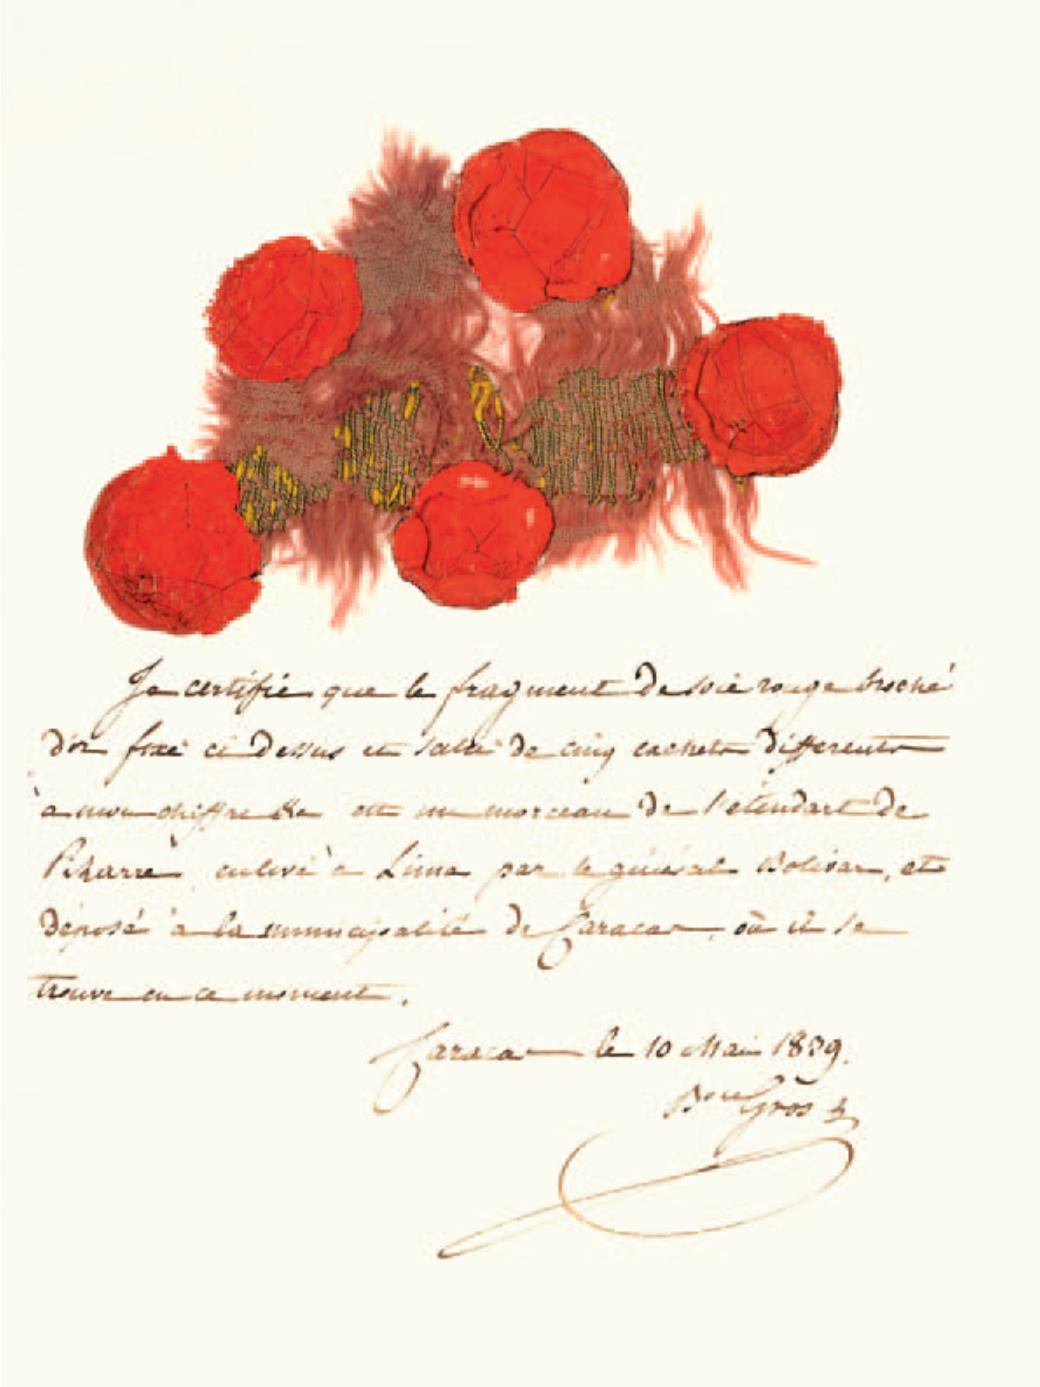 Je certifie que le fragment de soie rouge broché
d'or fixé ci dessus et scellé de cinq cachets differents
à mon chiffre est un morceau de l'étendart de
Pizarre enlevé à Lima par le général Bolivar, et
déposé à la municipalité de Caracas, où il se
trouve en ce moment.
Caracas le 10 Mai 1839.
Bon Gros